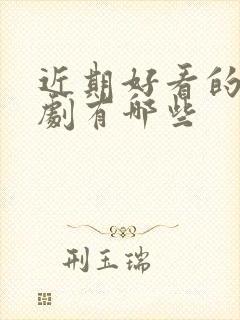 近期好看的
劇有哪些
刑玉瑞